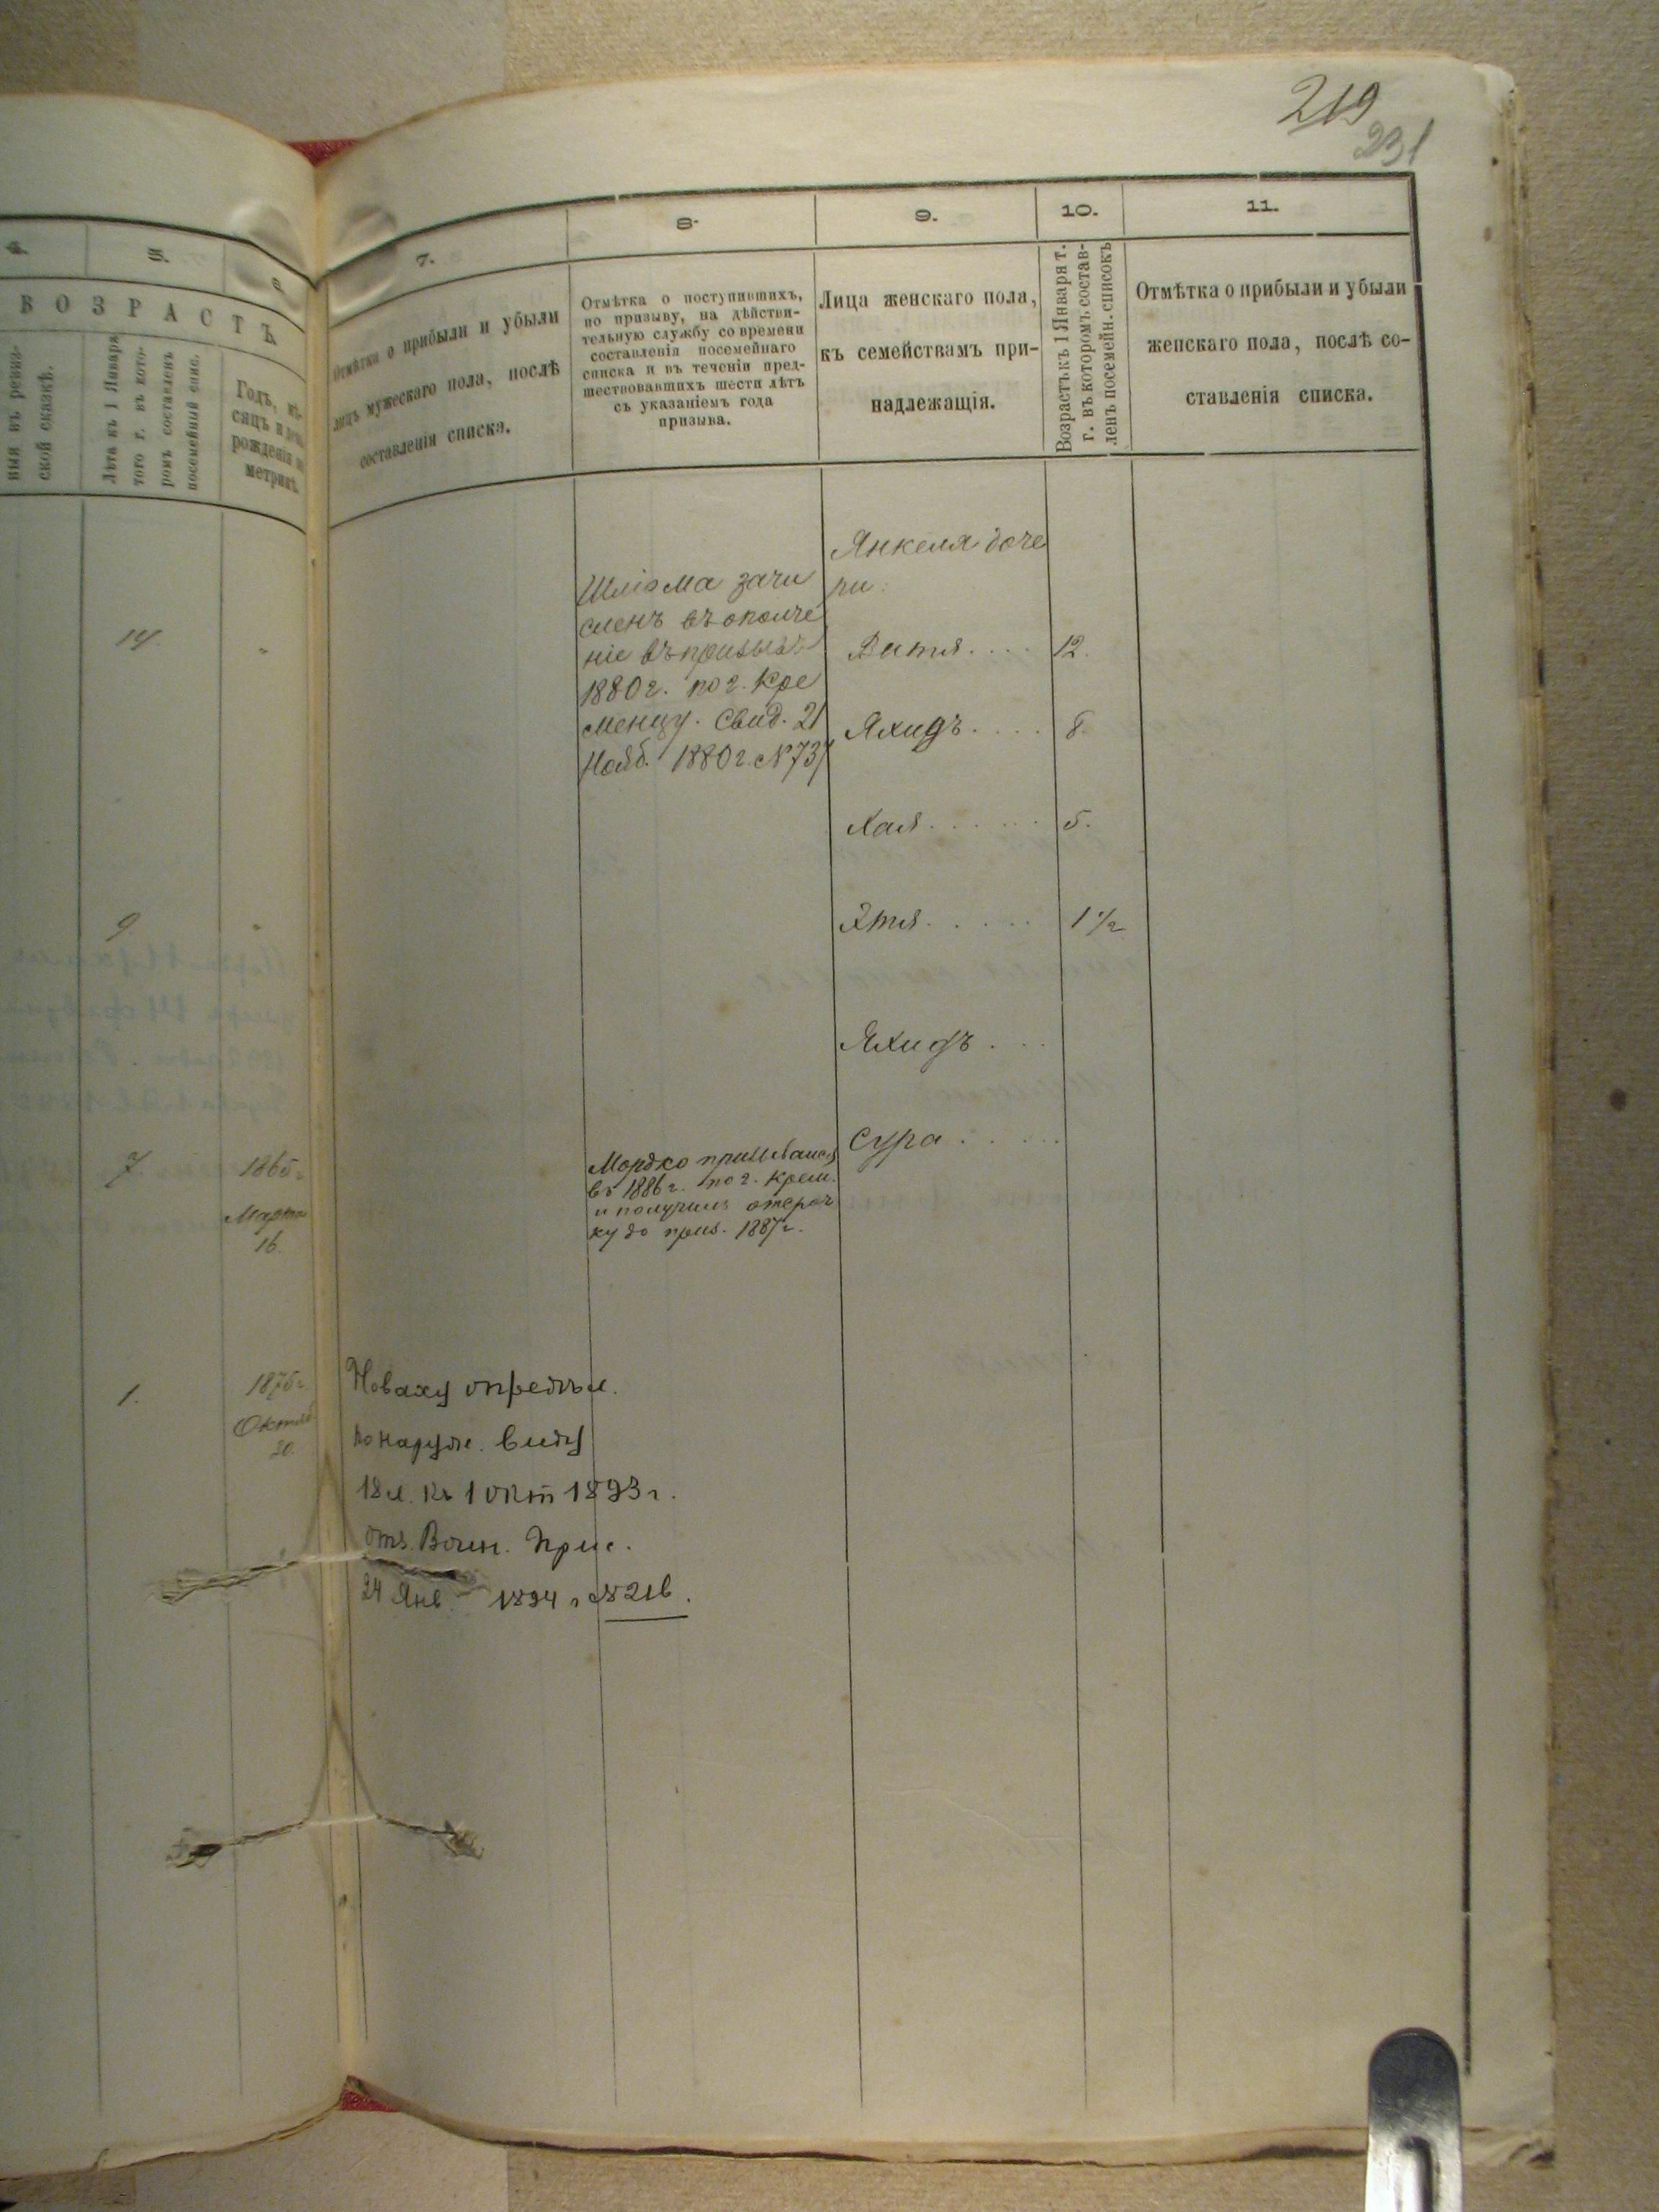 219
231
4.
5.
6
7.
8.
9.
10.
11.
ВОЗРАСТЪ
ской сказкѣ.
Лѣта къ 1 Января
того г. въ кото-
ромъ составленъ
посемейный спис.
Годъ, мѣ-
сяцъ и день
рожденія по
метрикѣ.
Отмѣтка о прибыли и убыли
лицъ мужескаго пола, послѣ
составленія списка.
Отмѣтка о поступившихъ,
по призыву, на дѣйстви-
тельную службу со времени
составленія посемейнаго
списка и въ теченіи пред-
шествовавшихъ шести лѣтъ
съ указаніемъ года
призыва.
Лица женскаго пола,
къ семействамъ при-
надлежащія.
Возрастъ къ 1 Января т.
г. въ которомъ состав-
ленъ посемейн. списокъ
Отмѣтка о прибыли и убыли
женскаго пола, послѣ со-
ставленія списка.
14.
9
7.
1865 г.
Марта
16.
1.
1875 г.
Октяб
20.
Новаху опредѣл.
по наруж. виду
18 л. къ 1 окт 1893 г.
отз. Воин. Прис.
24 Янв. 1894 г. № 216.
Шліома зачи
сленъ въ ополче
ніе въ призывъ
1880 г. по г. Кре
менцу. Свид. 21
Нояб. 1880 г. № 737
Мордко призывался
въ 1886 г. по г. Крем.
и получилъ отсроч
ку до приз. 1887 г.
Янкеля доче
ри:
Витя.... 12.
Яхидъ.... 8.
Хая...... 5.
Этя..... 1 1/2
Яхидъ...
Сура.....